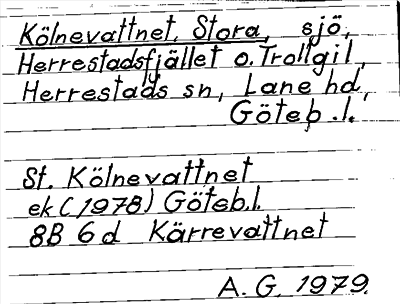 Kölnevattnet, Stora, sjö,
Herrestadsfjället o. Trollgil,
Herrestads sn, Lane hd,
Göteb. l.
St. Kölnevattnet
ek (1978) Göteb. l.
8B 6d Kärrevattnet
A. G. 1979.